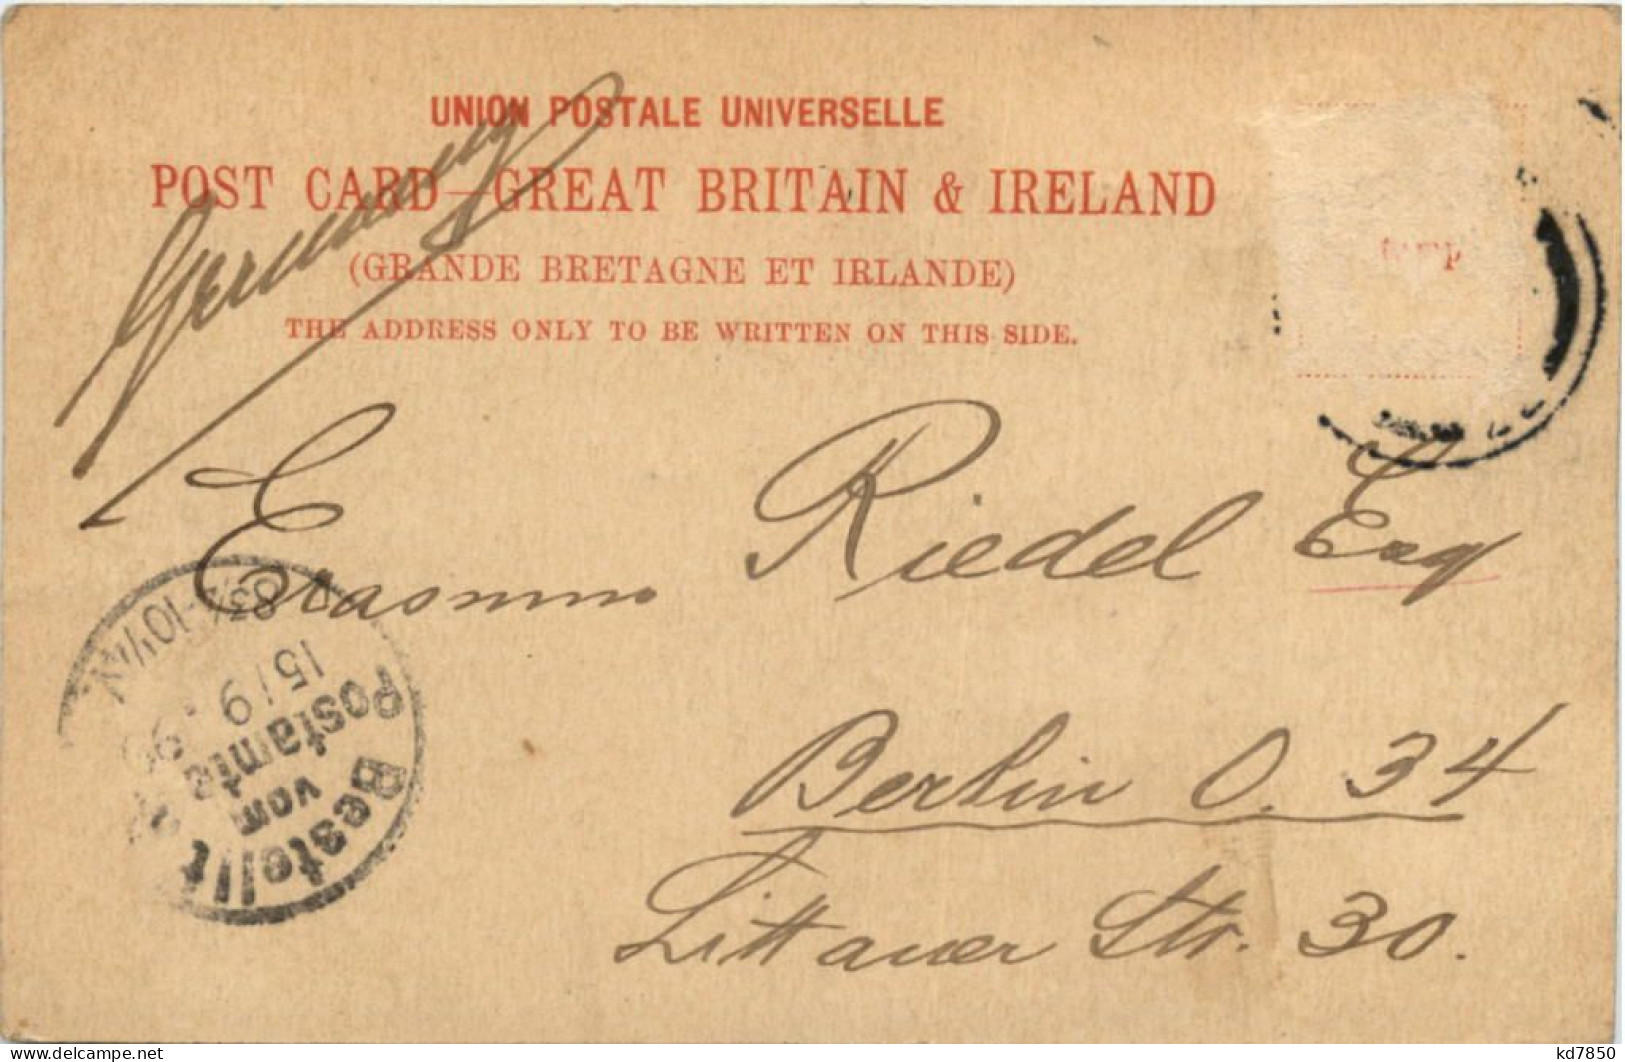 UNION POSTALE UNIVERSELLE
POST CARD–GREAT BRITAIN & IRELAND
(GRANDE BRETAGNE ET IRLANDE)
THE ADDRESS ONLY TO BE WRITTEN ON THIS SIDE.
Germany
Riedel Esq
Berlin O. 34
Littauer Str. 30.
Bestellt
vom
Postamte
15/9
delcampe.net
kd7850